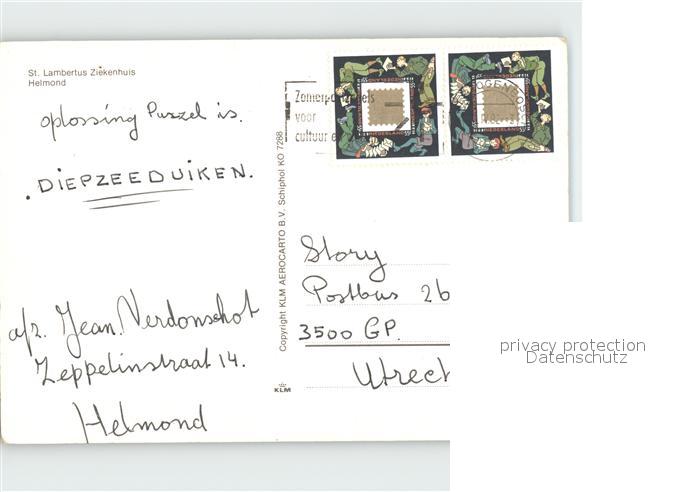 St. Lambertus Ziekenhuis
Helmond
oplossing Puszel is.
. DIEPZEEDUIKEN.
afz. Jean. Verdonschot
Zeppelinstraat 14.
Helmond
Copyright KLM AEROCARTO B.V. Schiphol KO 7288
KLM
voor
cultuur
NEDERLAND
55
NEDERLAND
55
Story
Postbus 26
3500 GP.
Utrech
privacy protection
Datenschutz